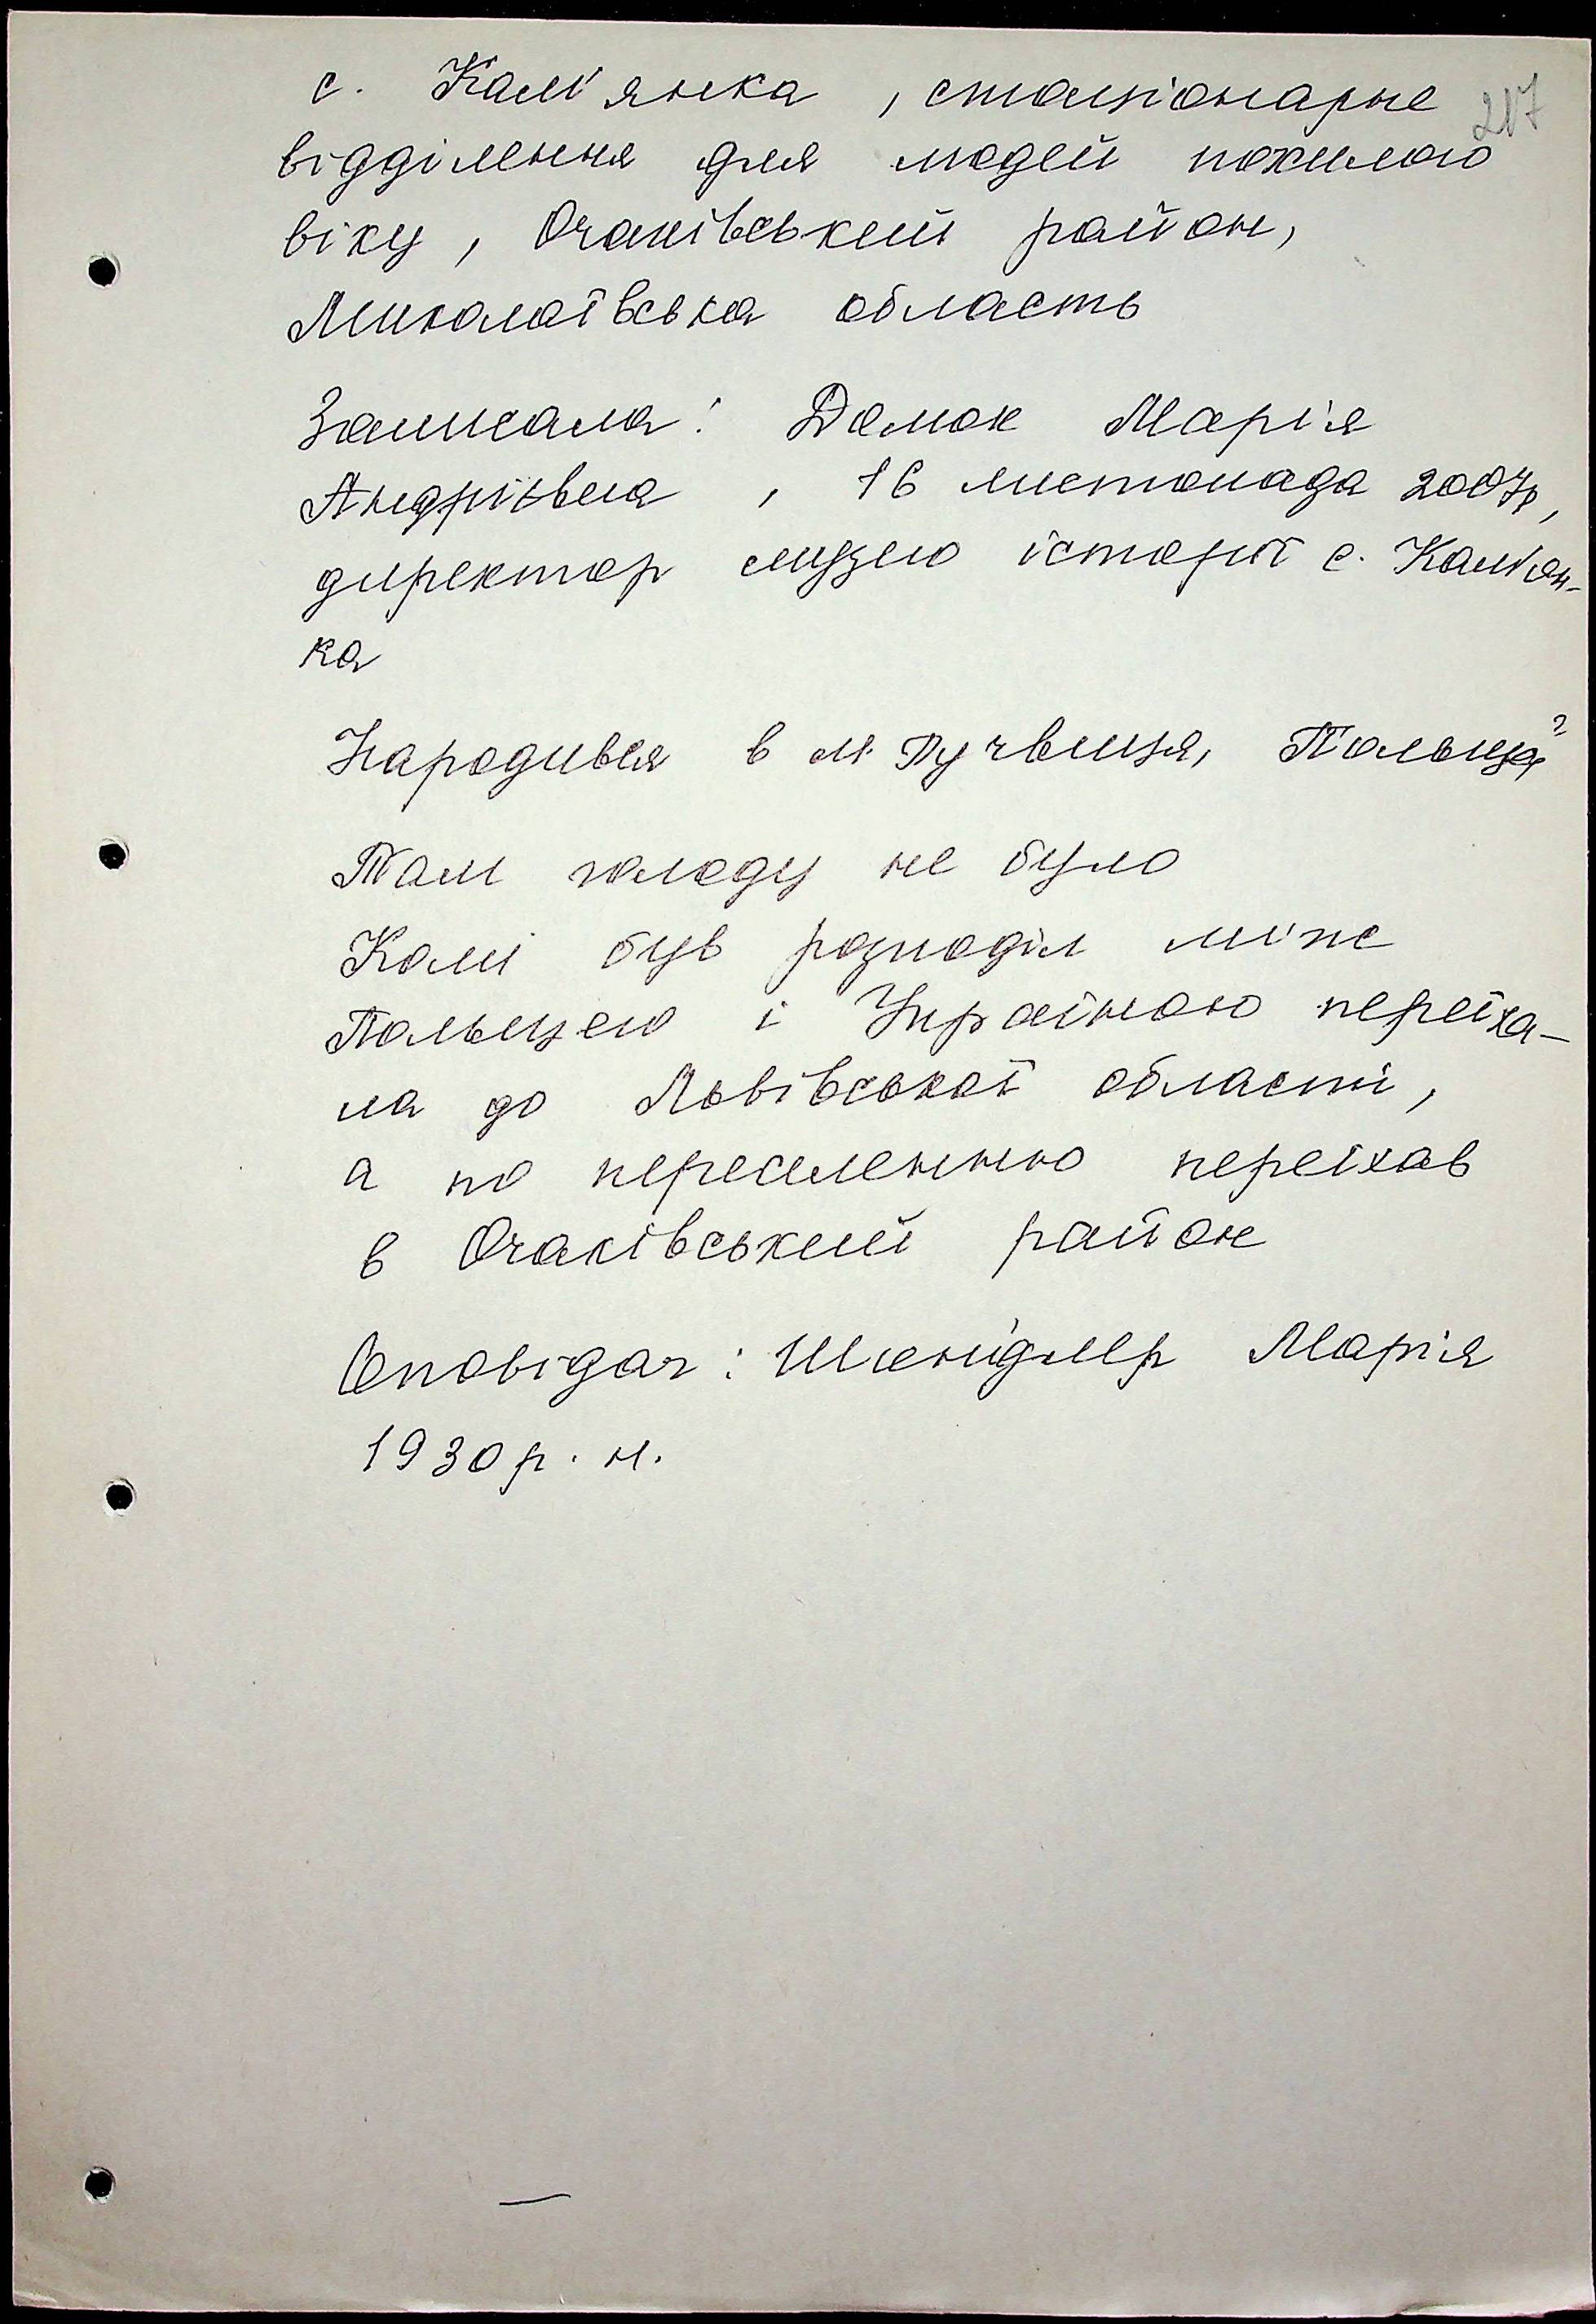 с. Кам'янка , стаціонарне
207
відділення для людей похилого
віку , Очаківський район,
Миколаївська область
Записала: Домок Марія
Андріївна , 16 листопада 2007р,
директор музею історії с. Кам'ян-
ка
Народився в м. Польща?
Там голоду не було
Колі був розподіл між
Польщею і Україною переїха-
ла до Львівської області,
а по переселенню переїхав
в Очаківський район
Оповідач: Марія
1930 р. н.